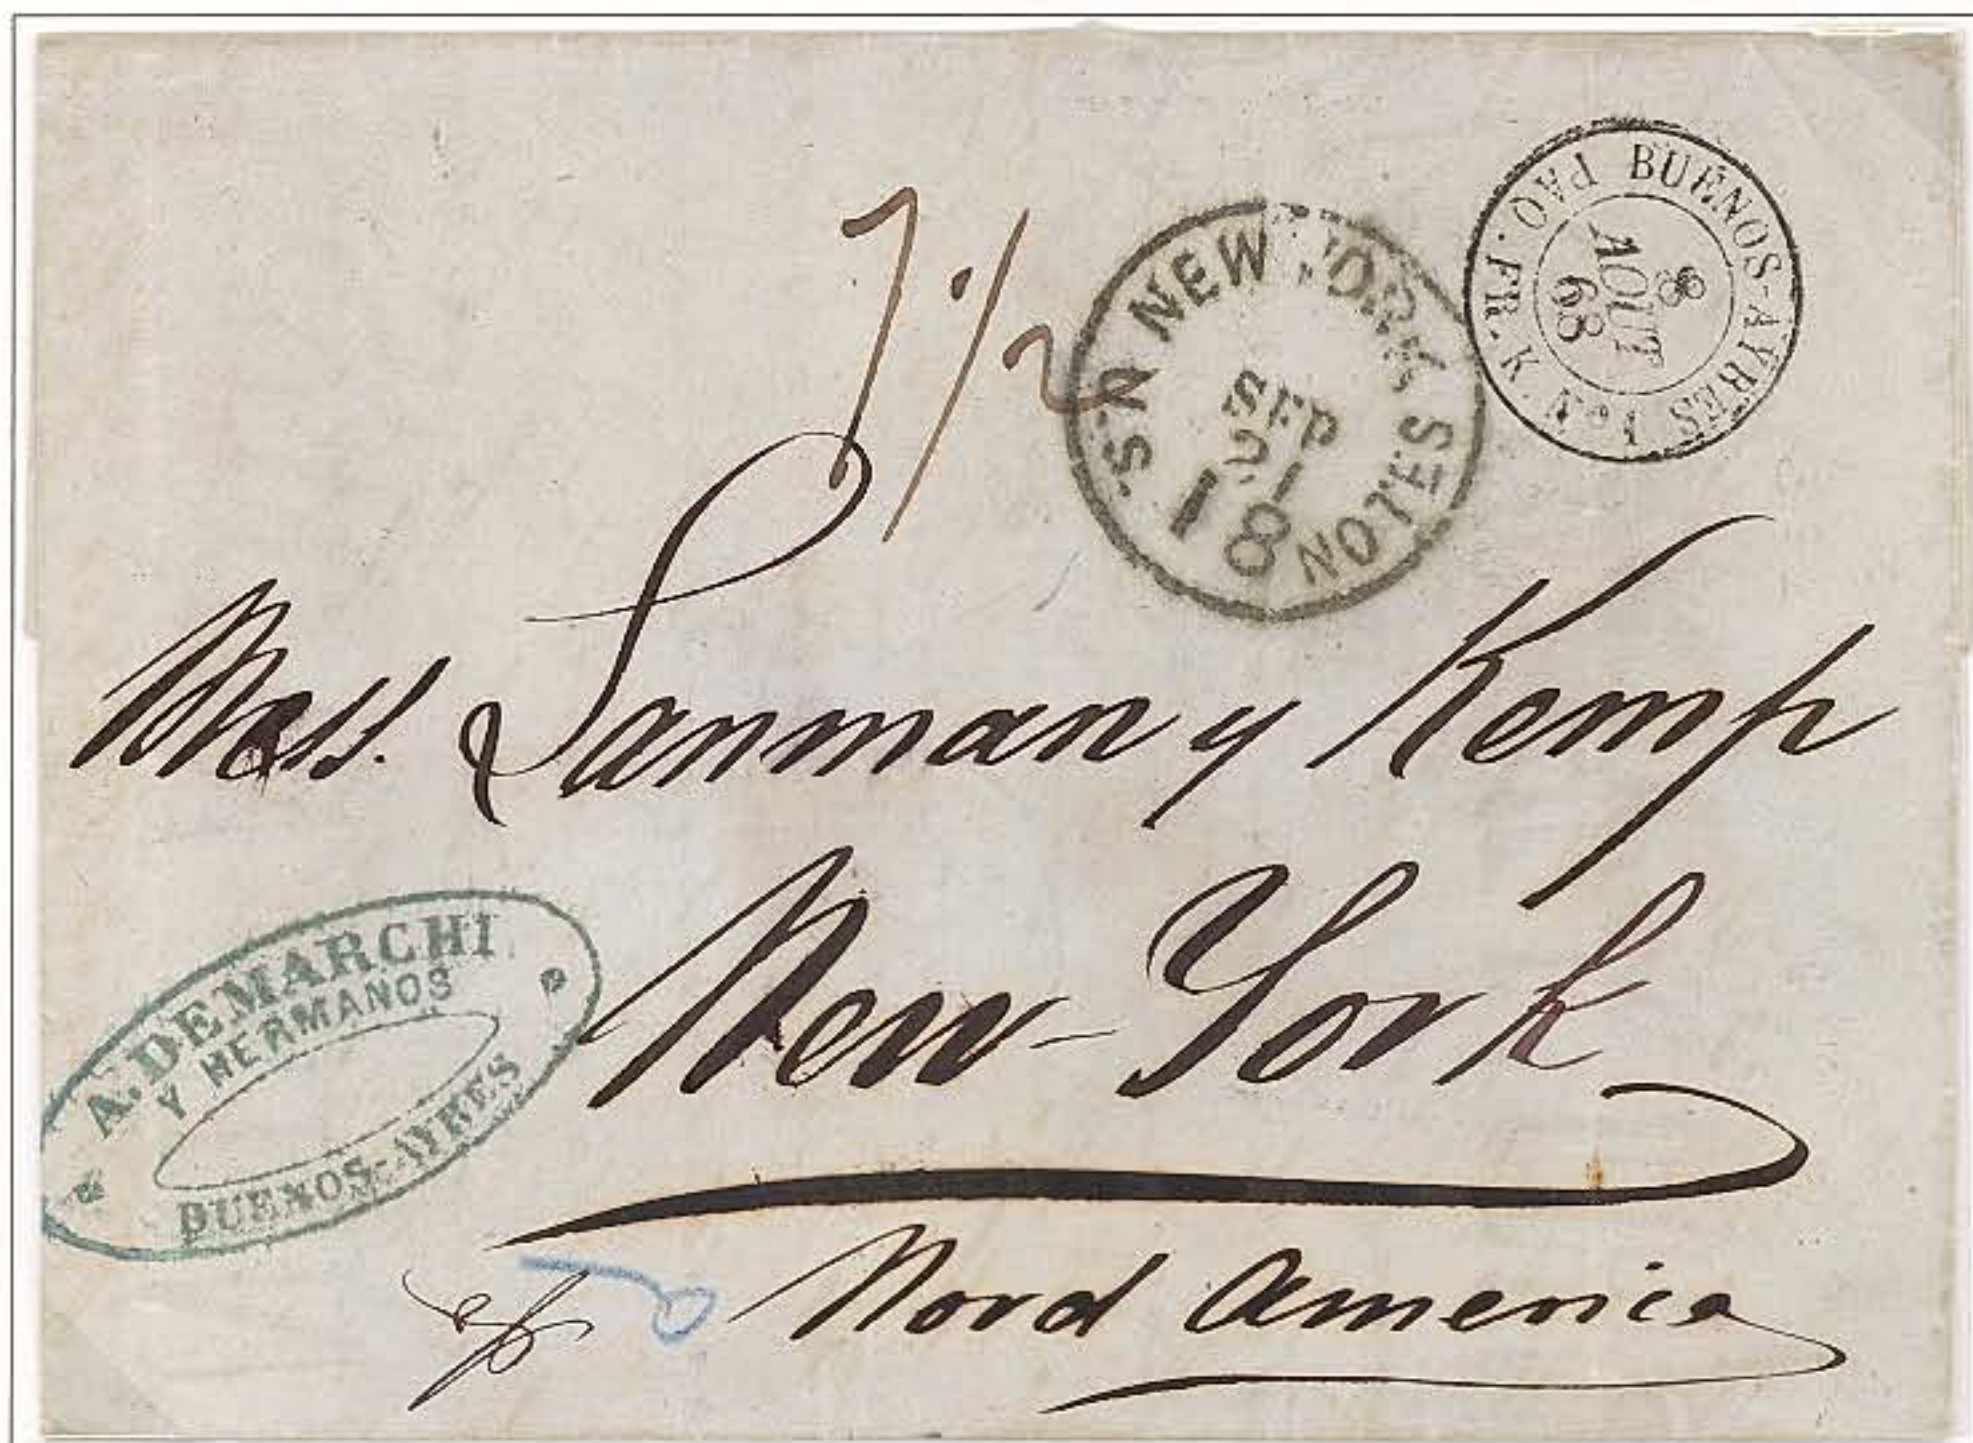 7 1/2
NEW YORK
SEP
21
18
U.S. NOTES
BUENOS-AYRES
8
AOUT
68
PAQ. FR. K. No 1
Mess. Lanman y Kemp
New-York
Nord America
A. DEMARCHI
Y HERMANOS
BUENOS-AYRES